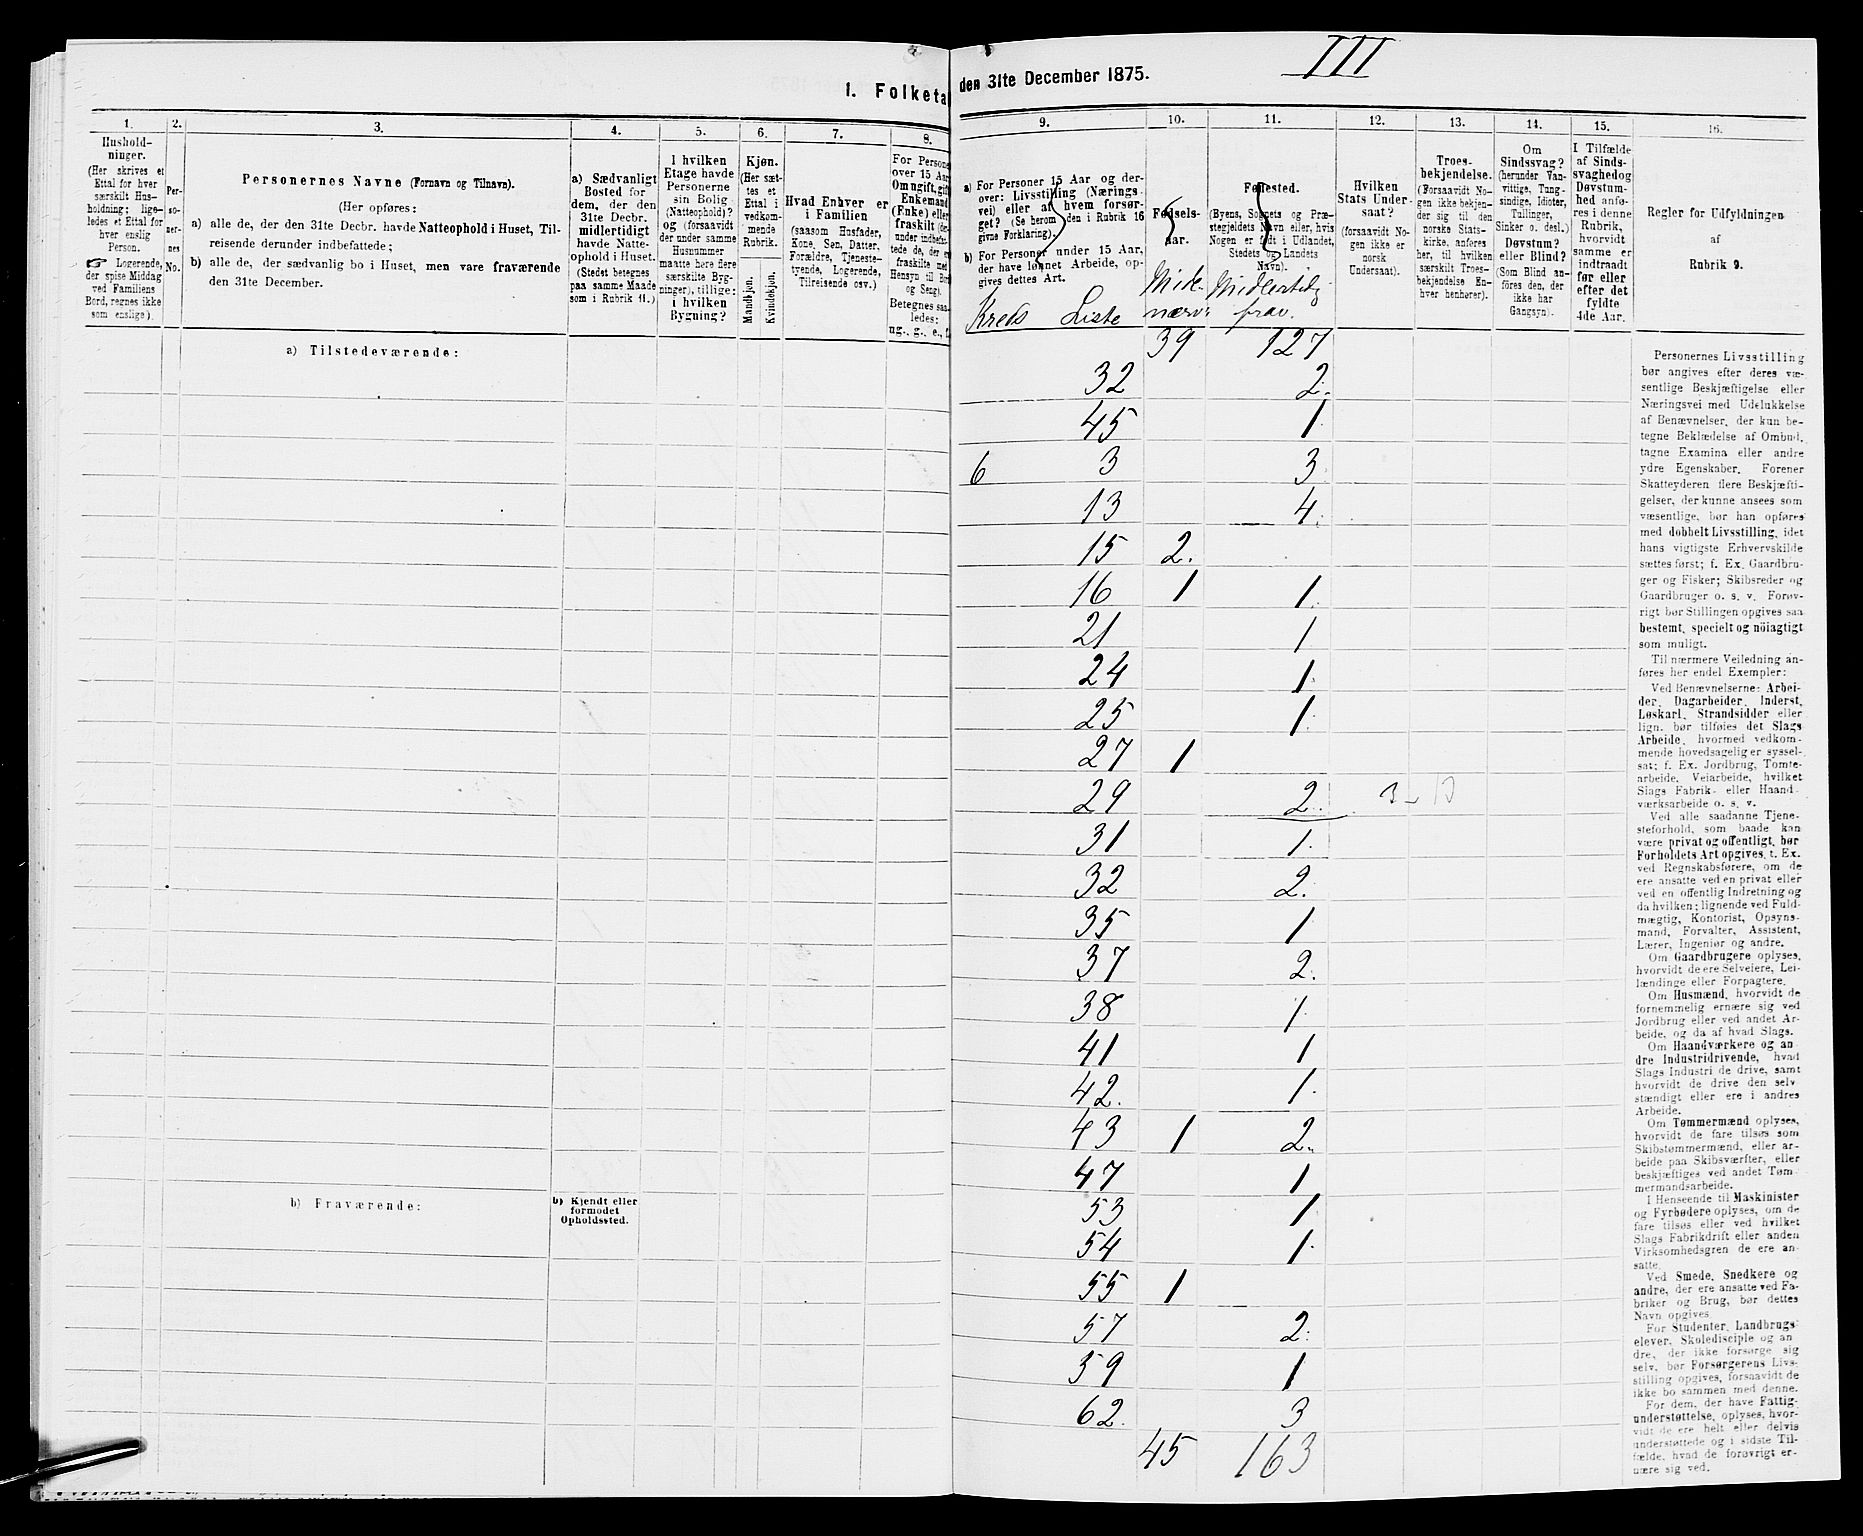 III
1. Folketa
den 31te December 1875.
1. 2. 3. 4. 5. 6. 7. 8. 9. 10. 11. 12. 13. 14. 15. 16.
Hushold-
ninger.
(Her skrives et
Ettal for hver
særskilt Hus-
holdning; lige-
ledes et Ettal for
hver enslig
Person.
☞ Logerende,
der spise Middag
ved Familiens
Bord, regnes ikke
som enslige).
Per-
so-
ner-
nes
No.
Personernes Navne (Fornavn og Tilnavn).
(Her opføres:
a) alle de, der den 31te Decbr. havde Natteophold i Huset, Til-
reisende derunder indbefattede;
b) alle de, der sædvanlig bo i Huset, men vare fraværende
den 31te December.
a) Sædvanligt
Bosted for
dem, der den
31te Decbr.
midlertidigt
havde Natte-
ophold i Huset.
(Stedet betegnes
paa samme Maade
som i Rubrik 11.)
I hvilken
Etage havde
Personerne
sin Bolig
(Natteophold)?
og (forsaavidt
der under samme
Husnummer
maatte høre flere
særskilte Byg-
ninger), tillige:
i hvilken
Bygning?
Kjøn.
(Her sæt-
tes et
Ettal i
vedkom-
mende
Rubrik.
Mandkjøn.
Kvindekjøn.
Hvad Enhver er
i Familien
(saasom Husfader,
Kone, Søn, Datter,
Forældre, Tjeneste-
tyende, Logerende,
Tilreisende osv.)
For Persone
over 15 Aar
Om ugift, gift
Enkemand
(Enke) eller
fraskilt (der-
under indbefat-
tede de, der ere
fraskilte med
Hensyn til Bord
og Seng).
Betegnes saa-
ledes:
ug., g., e., f.
a) For Personer 15 Aar og der-
over: Livsstilling (Nærings-
vei) eller af hvem forsør-
get? (Se herom den i Rubrik 16
givne Forklaring).
b) For Personer under 15 Aar,
der have lønnet Arbeide, op-
gives dettes Art.
Fødsels-
aar.
Fødested.
(Byens, Sognets og Præ-
stegjeldets Navn eller, hvis
Nogen er født i Udlandet,
Stedets og Landets
Navn).
Hvilken
Stats Under-
saat?
(forsaavidt No-
gen ikke er
norsk
Undersaat).
Troes-
bekjendelse.
(Forsaavidt No-
gen ikke bekjen-
der sig til den
norske Stats-
kirke, anføres
her, til hvilken
særskilt Troes-
bekjendelse En-
hver henhører).
Om
Sindssvag?
(herunder Van-
vittige, Tung-
sindige, Idioter,
Tullinger,
Sinker o. desl.)
Døvstum?
eller Blind?
(Som Blind an-
føres den, der
ikke har
Gangsyn).
I Tilfælde
af Sinds-
svaghed og
Døvstum-
hed anfø-
res i denne
Rubrik,
hvorvidt
samme er
indtraadt
før eller
efter det
fyldte
4de Aar.
Regler for Udfyldningen
af
Rubrik 9.
Kreds Liste Midl. nærv. Midlertidig frav.
39 127
32 2.
45 1
6 3 3
13 4.
15 2.
16 1 1.
21 1
24 1.
25 1.
27 1
29 2.
31 1.
32 2.
35 1
37 2.
38 1.
41 1
42. 1.
43 1 2.
47 1
53 1
54 1.
55 1
57 2.
59 1
62. 3
45 163
a) Tilstedeværende:
b) Fraværende:
b) Kjendt eller
formodet
Opholdssted.
Personernes Livsstilling
bør angives efter deres væ-
sentlige Beskjæftigelse eller
Næringsvei med Udelukkelse
af Benævnelser, der kun be-
tegne Beklædelse af Ombud,
tagne Examina eller andre
ydre Egenskaber. Forener
Skatteyderen flere Beskjæfti-
gelser, der kunne ansees som
væsentlige, bør han opføres
med dobbelt Livsstilling, idet
hans vigtigste Erhvervskilde
sættes først; f. Ex. Gaardbru-
ger og Fisker; Skibsreder og
Gaardbruger o. s. v. Forøv-
rigt bør Stillingen opgives saa
bestemt, specielt og nøiagtigt
som muligt.
Til nærmere Veiledning an-
føres her endel Exempler:
Ved Benævnelserne: Arbei-
der, Dagarbeider, Inderst,
Løskarl, Strandsidder eller
lign. bør tilføies det Slags
Arbeide, hvormed vedkom-
mende hovedsagelig er syssel-
sat; f. Ex. Jordbrug, Tomte-
arbeide, Veiarbeide, hvilket
Slags Fabrik- eller Haand-
værksarbeide o. s. v.
Ved alle saadanne Tjene-
steforhold, som baade kan
være privat og offentligt, bør
Forholdets Art opgives, t. Ex.
ved Regnskabsførere, om de
ere ansatte ved en privat eller
ved en offentlig Indretning og
da hvilken; lignende ved Fuld-
mægtig, Kontorist, Opsyns-
mand, Forvalter, Assistent,
Lærer, Ingeniør og andre.
Om Gaardbrugere oplyses,
hvorvidt de ere Selveiere, Lei-
lændinge eller Forpagtere.
Om Husmænd, hvorvidt de
fornemmelig ernære sig ved
Jordbrug eller ved andet Ar-
beide, og da af hvad Slags.
Om Haandværkere og an
dre Industridrivende, hvad
Slags Industri de drive, samt
hvorvidt de drive den selv
stændigt eller ere i andres
Arbeide.
Om Tømmermænd oplyses,
hvorvidt de fare tilsøs som
Skibstømmermænd, eller ar-
beide paa Skibsværfter, eller
beskjæftiges ved andet Tøm
mermandsarbeide.
I Henseende til Maskinister
og Fyrbødere oplyses, om de
fare tilsøs eller ved hvilket
Slags Fabrikdrift eller anden
Virksomhedsgren de ere an-
satte.
Ved Smede, Snedkere og
andre, der ere ansatte ved Fa-
briker og Brug, bør dettes
Navn opgives.
For Studenter, Landbrugs
elever, Skoledisciple og an
dre, der ikke forsørge sig
selv, bør Forsørgerens Livs-
stilling opgives, forsaavidt de
ikke bo sammen med denne.
For dem, der have Fattig-
understøttelse, oplyses, hvor-
vidt de ere helt eller delvis
understøttede og i sidste Til-
fælde, hvad de forøvrigt er-
nære sig ved.